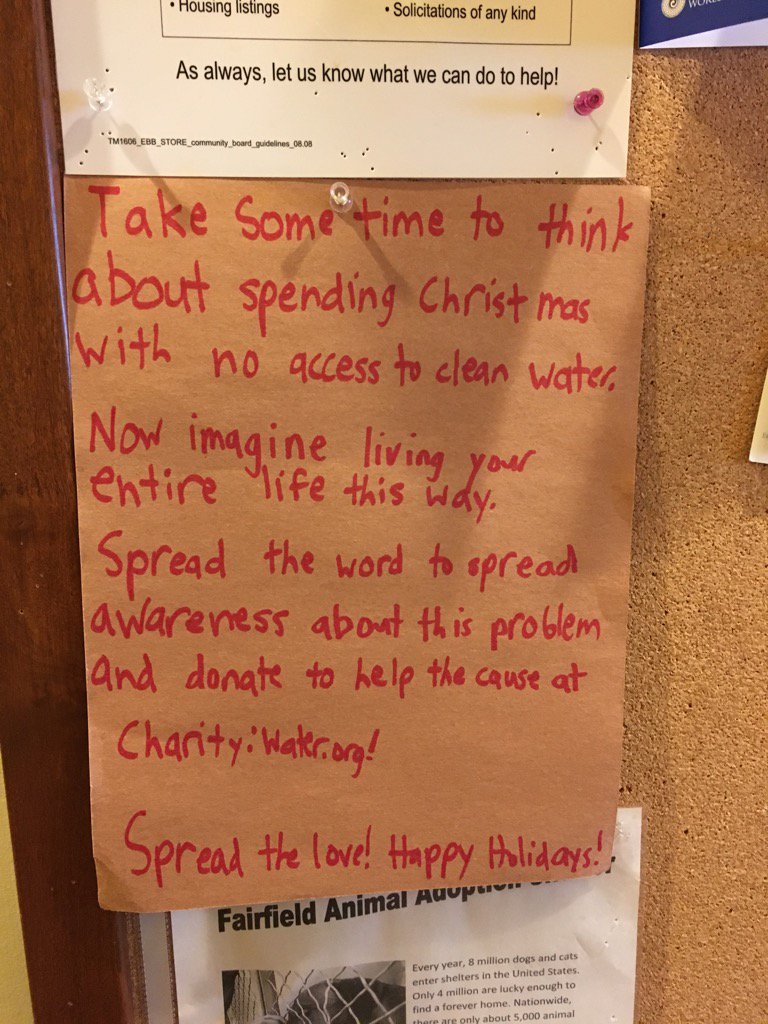 • Housing listings
• Solicitations of any kind
As always, let us know what we can do to help!
TM1606_EBB_STORE_community_board_guidelines_08.08
Take Some time to think
about spending Christmas
with no access to clean water.
Now imagine living your
entire life this way.
Spread the word to spread
awareness about this problem
and donate to help the cause at
Charity:Water.org!
Spread the love! Happy Holidays!
Fairfield Animal Adoption
Every year, 8 million dogs and cats
enter shelters in the United States.
Only 4 million are lucky enough to
find a forever home. Nationwide,
there are only about 5,000 animal